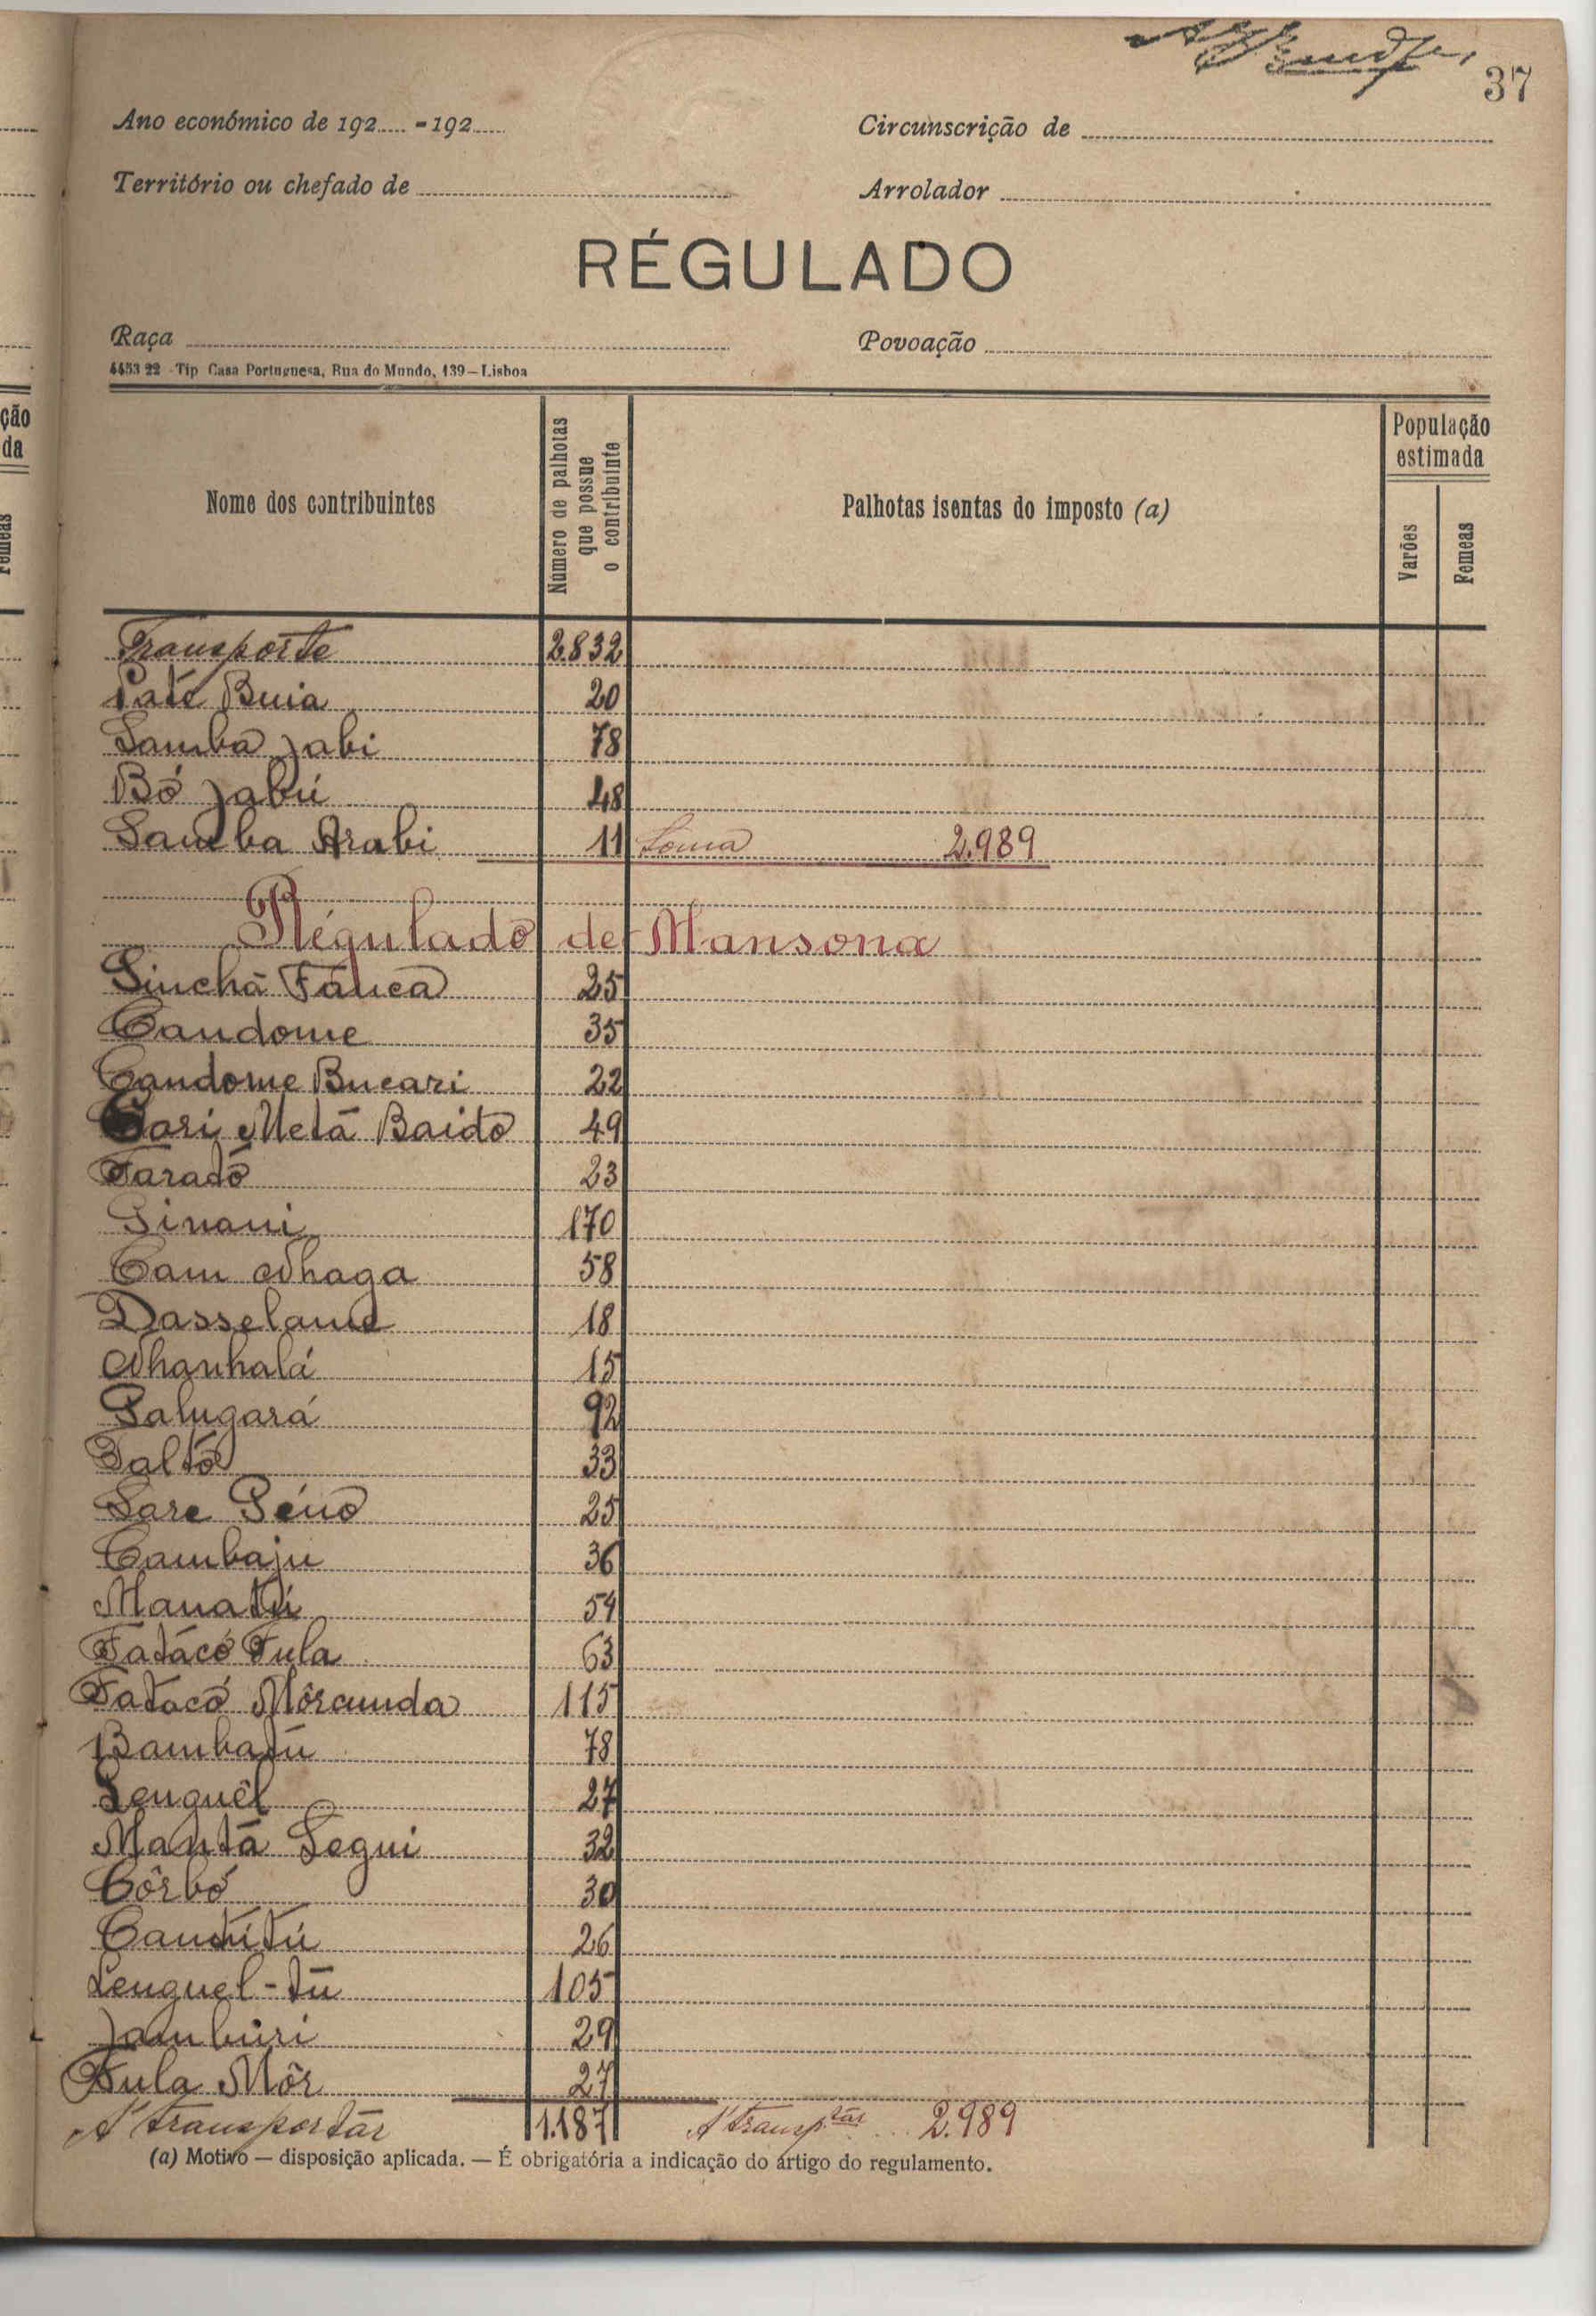 37
Ano económico de 192..... - 192.....
Circunscrição de
Território ou chefado de
Arrolador
RÉGULADO
Raça
Povoação
4453 22 - Tip Casa Portuguesa, Rua do Mundo, 139 — Lisboa
Nome dos contribuintes
Número de palhotas que possue o contribuinte
Palhotas isentas do imposto (a)
População estimada
Varões
Femeas
Transporte 2.832
Paté Buia 20
Samba Jabi 78
Bó Jabú 48
Samba Arabi 11 Soma 2.989
Régulado de Mansona
Sinchã Fanca 25
Candome 35
Candome Bucari 22
Cari Metá Baido 49
Farado 23
Ginani 170
Cam Nhaga 58
Dasselame 18
Nhanhalá 15
Galugará 92
Galtó 33
Sare Géno 25
Cambaju 36
Manatú 54
Fatácó Fula 63
Fatacó Môrcunda 115
Bambatú 78
Lenguêl 27
Mantã Segui 32
Côrbó 30
Cantitú 26
Lenguel-tú 105
Jambúri 29
Fula Môr 27
A' transportár 1.187 A' transptár ... 2.989
(a) Motivo — disposição aplicada. — É obrigatória a indicação do artigo do regulamento.